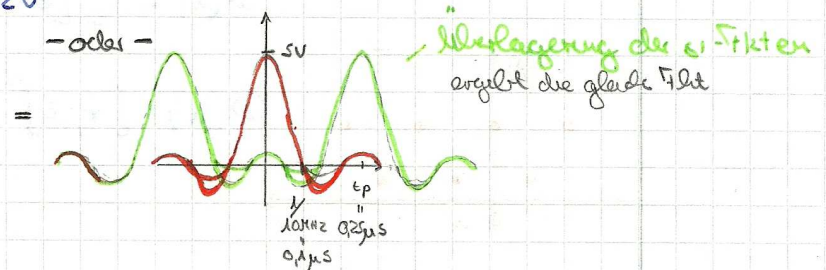 - oder -
5V
Überlagerung der si-Fkten
ergibt die gleiche Fkt
=
tp
1/10MHz
"
0,1µs
"
0,25µs